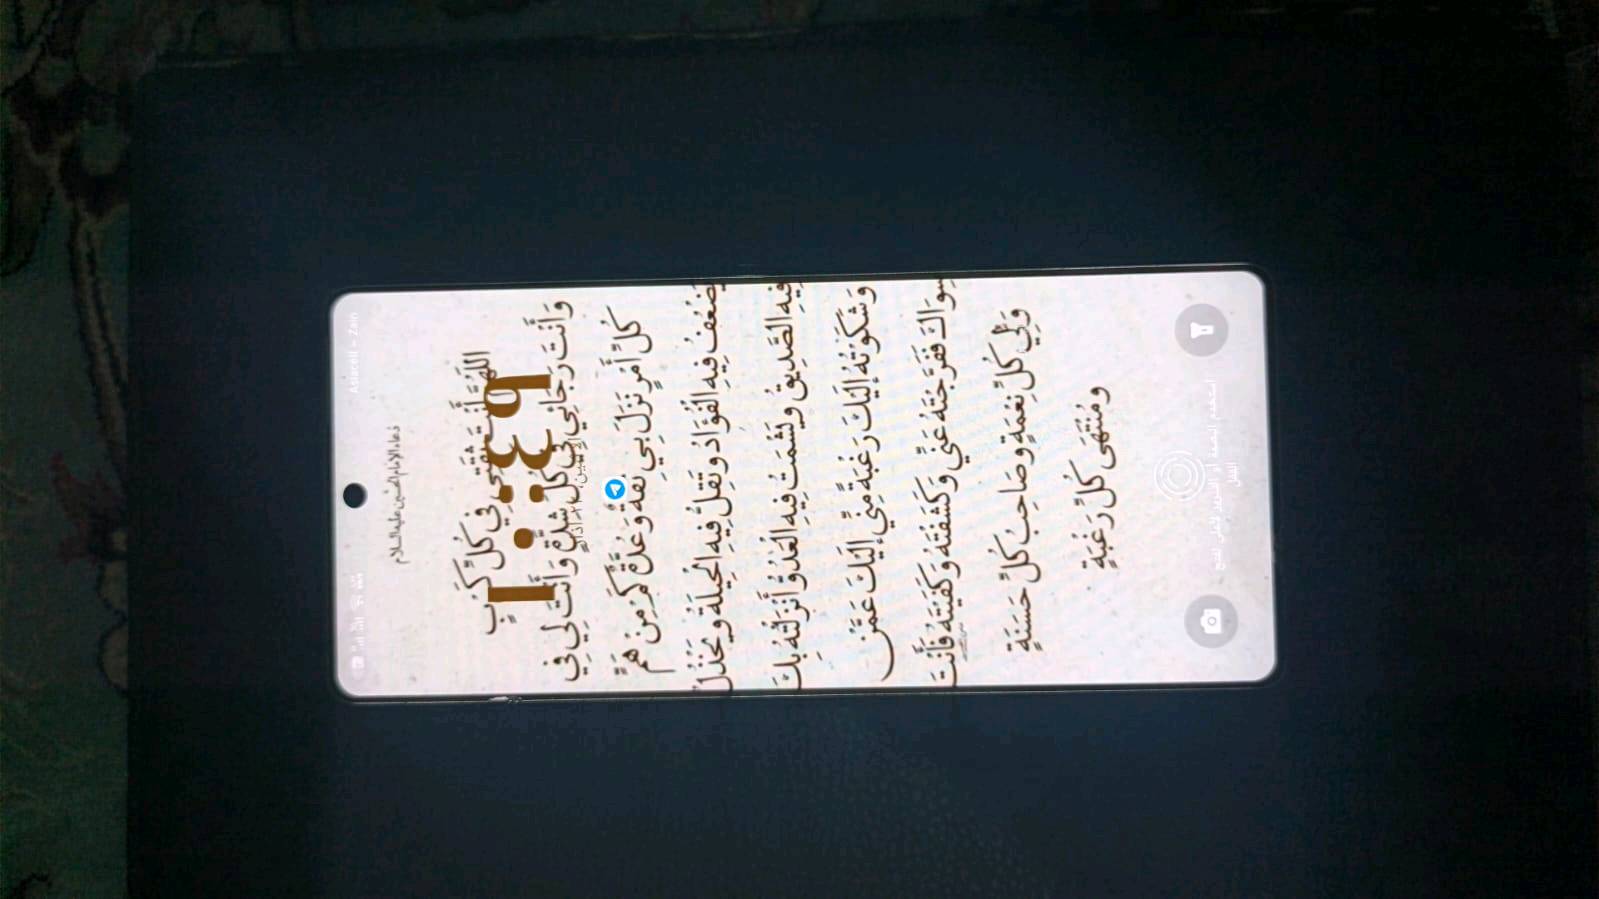 Asiacell – Zain
دعاء الإمام الحسين عليه السلام
اللَّهُمَّ أَنْتَ ثِقَتِي فِي كُلِّ كَرْبٍ
١٠:٤٩
وَأَنْتَ رَجَائِي فِي كُلِّ شِدَّةٍ وَأَنْتَ لِي فِي
الإثنين، ٢ آذار
كُلِّ أَمْرٍ نَزَلَ بِي ثِقَةٌ وَعُدَّةٌ كَمْ مِنْ هَمٍّ
يَضْعُفُ فِيهِ الْفُؤَادُ وَتَقِلُّ فِيهِ الْحِيلَةُ وَيَخْذُلُ
فِيهِ الصَّدِيقُ وَيَشْمَتُ فِيهِ الْعَدُوُّ أَنْزَلْتُهُ بِكَ
وَشَكَوْتُهُ إِلَيْكَ رَغْبَةً مِنِّي إِلَيْكَ عَمَّنْ
سِوَاكَ فَفَرَّجْتَهُ عَنِّي وَكَشَفْتَهُ وَكَفَيْتَهُ فَأَنْتَ
وَلِيُّ كُلِّ نِعْمَةٍ وَصَاحِبُ كُلِّ حَسَنَةٍ
وَمُنْتَهَى كُلِّ رَغْبَةٍ
استخدم البصمة أو التمرير لأعلى لفتح
القفل